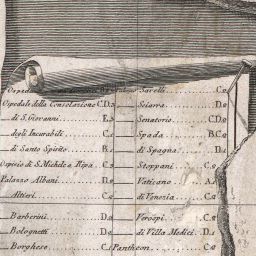 Savelli C.
Ospedale della Consolazione C.D.
Sciarra D.
di S. Giovanni E.
Senatorio C.D.
degli Incurabili C.
Spada B.C.
di Santo Spirito B.
di Spagna D.
Ospizio di S. Michel a Ripa C.
Stoppani C.
Palazzo Albani D.
Vaticano A.
Altieri C.
di Venezia C.
Barberini D.
Verospi C.
Bolognetti D.
di Villa Medici D.
Borghese C.
Pantheon C.